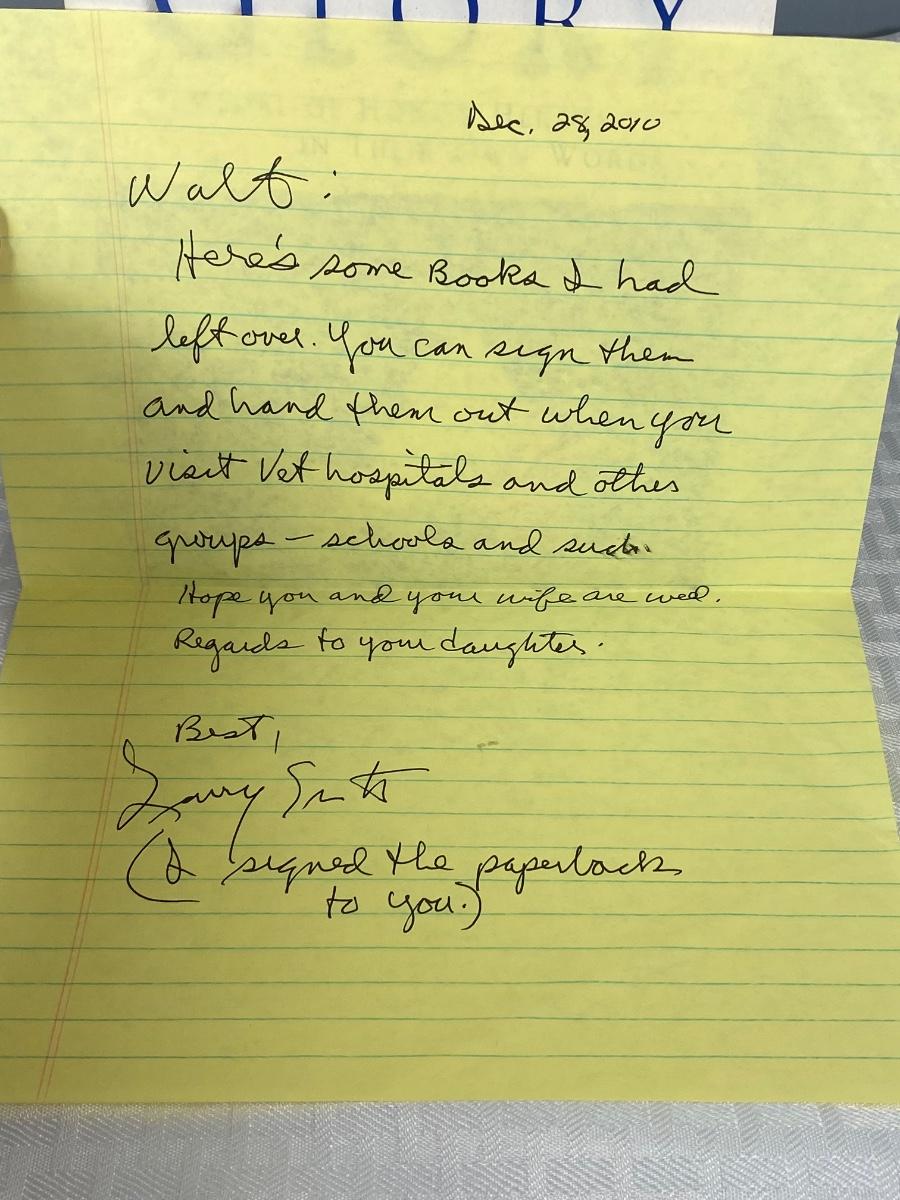 GLORY
Dec. 28, 2010
Walt:
Here's some Books I had
left over. You can sign them
and hand them out when you
visit Vet hospitals and other
groups – schools and such.
Hope you and your wife are well.
Regards to your daughter.
Best,
Larry Smith
(I signed the paperback
to you.)